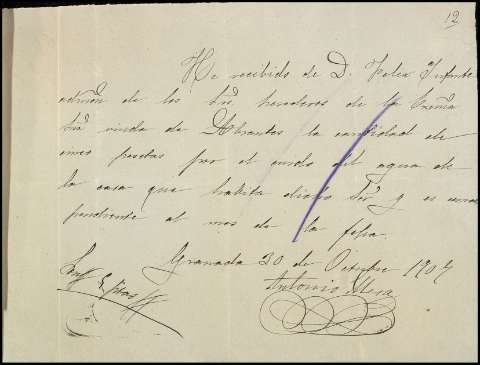 12
He recibido de D. Felix Infante
admon de los Sres herederos de la Excma
Sra viuda de Abrantes la cantidad de
cinco pesetas por el cuido del agua de
la casa que habita dicho Sor y es corres
pondiente al mes de la fecha.
Granada 30 de Octubre 1907
Antonio Mesa